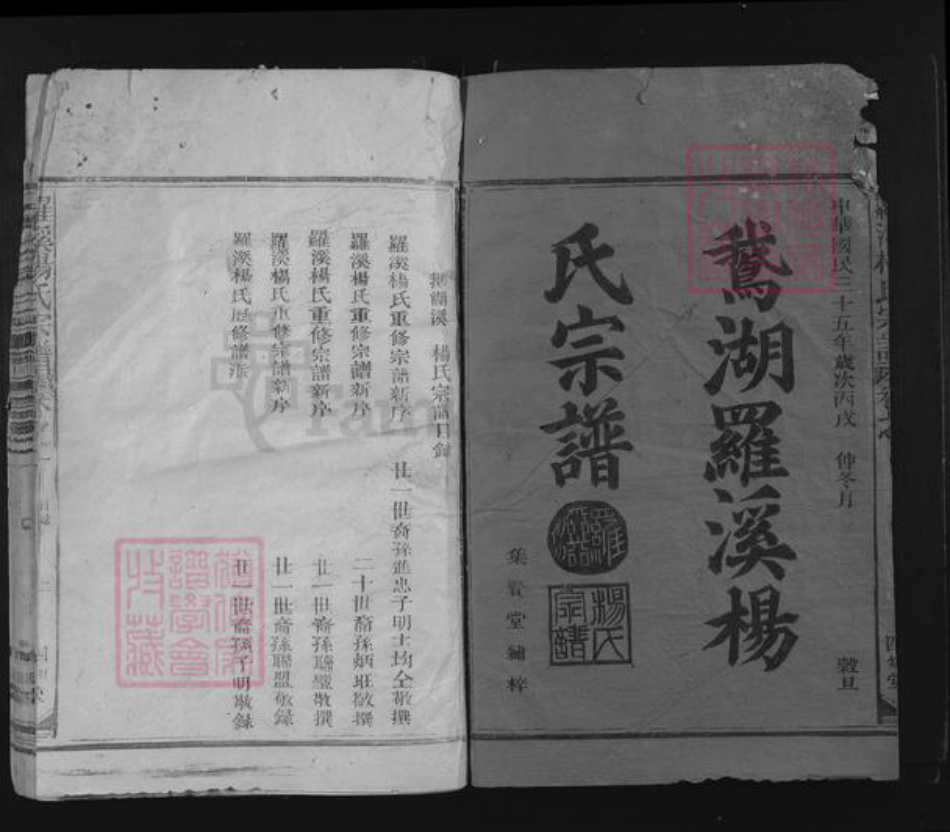 中華國民三十五年歲次丙戌 仲冬月 穀旦
鵞湖羅溪楊
氏宗譜
羅溪
楊氏宗譜
集賢堂繡梓
鵞湖溪 楊氏宗譜目錄
羅溪楊氏重修宗譜新序 廿一世裔孫進忠子明士均仝敬撰
羅溪楊氏重修宗譜新序 二十世裔孫炳班敬撰
羅溪楊氏重修宗譜新序 廿一世裔孫聯璧敬撰
羅溪楊氏重修宗譜新序 廿一世裔孫聯盟敬錄
羅溪楊氏歷修譜派 廿一世裔孫子明敬錄
羅溪楊氏宗譜